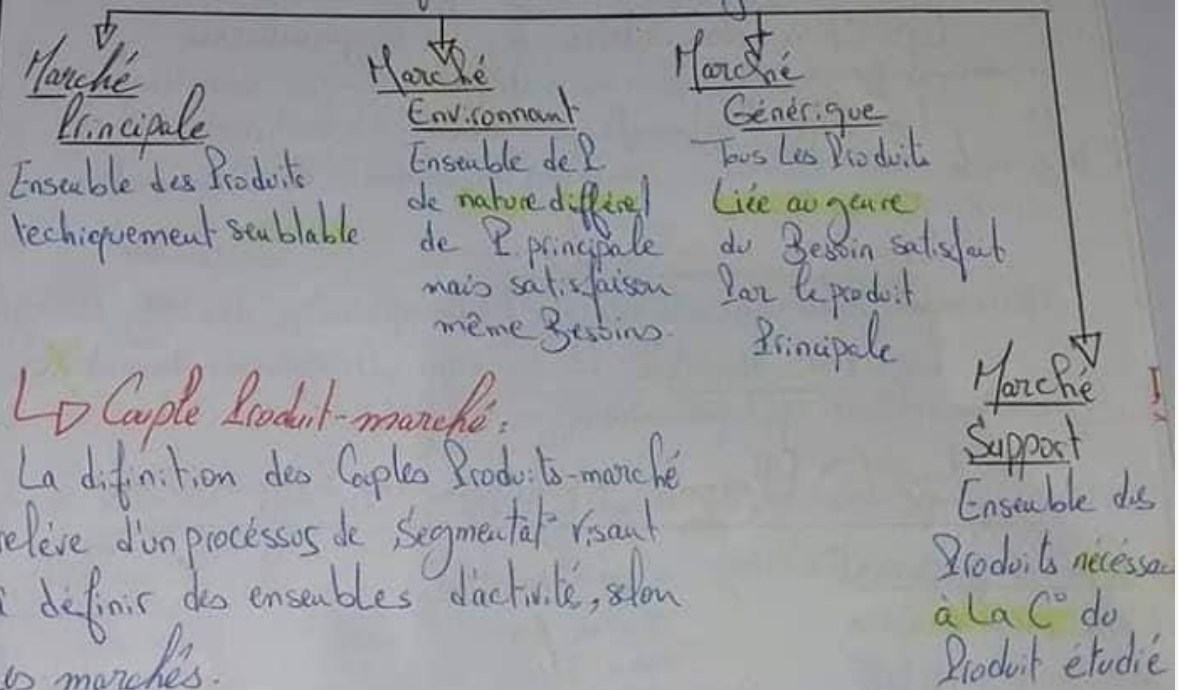 Marché
Principale
Ensemble des Produits
techiquement semblable
Marché
Environnant
Ensemble de P.
de nature différe
de P. principale
mais satisfaison
même Besoins.
Marché
Générique
Tous Les Produits
Liée au genre
du Besoin satisfait
Par le produit
Principale
Marché
Support
Ensemble des
Produits nécéssa
à La C° du
Produit étudié
↳ Couple Produit-marché:
La difinition des Couples Produits-marché
relève d'un procéssus de Segmentat° visant
définir des ensembles d'activité, selon
marchés.